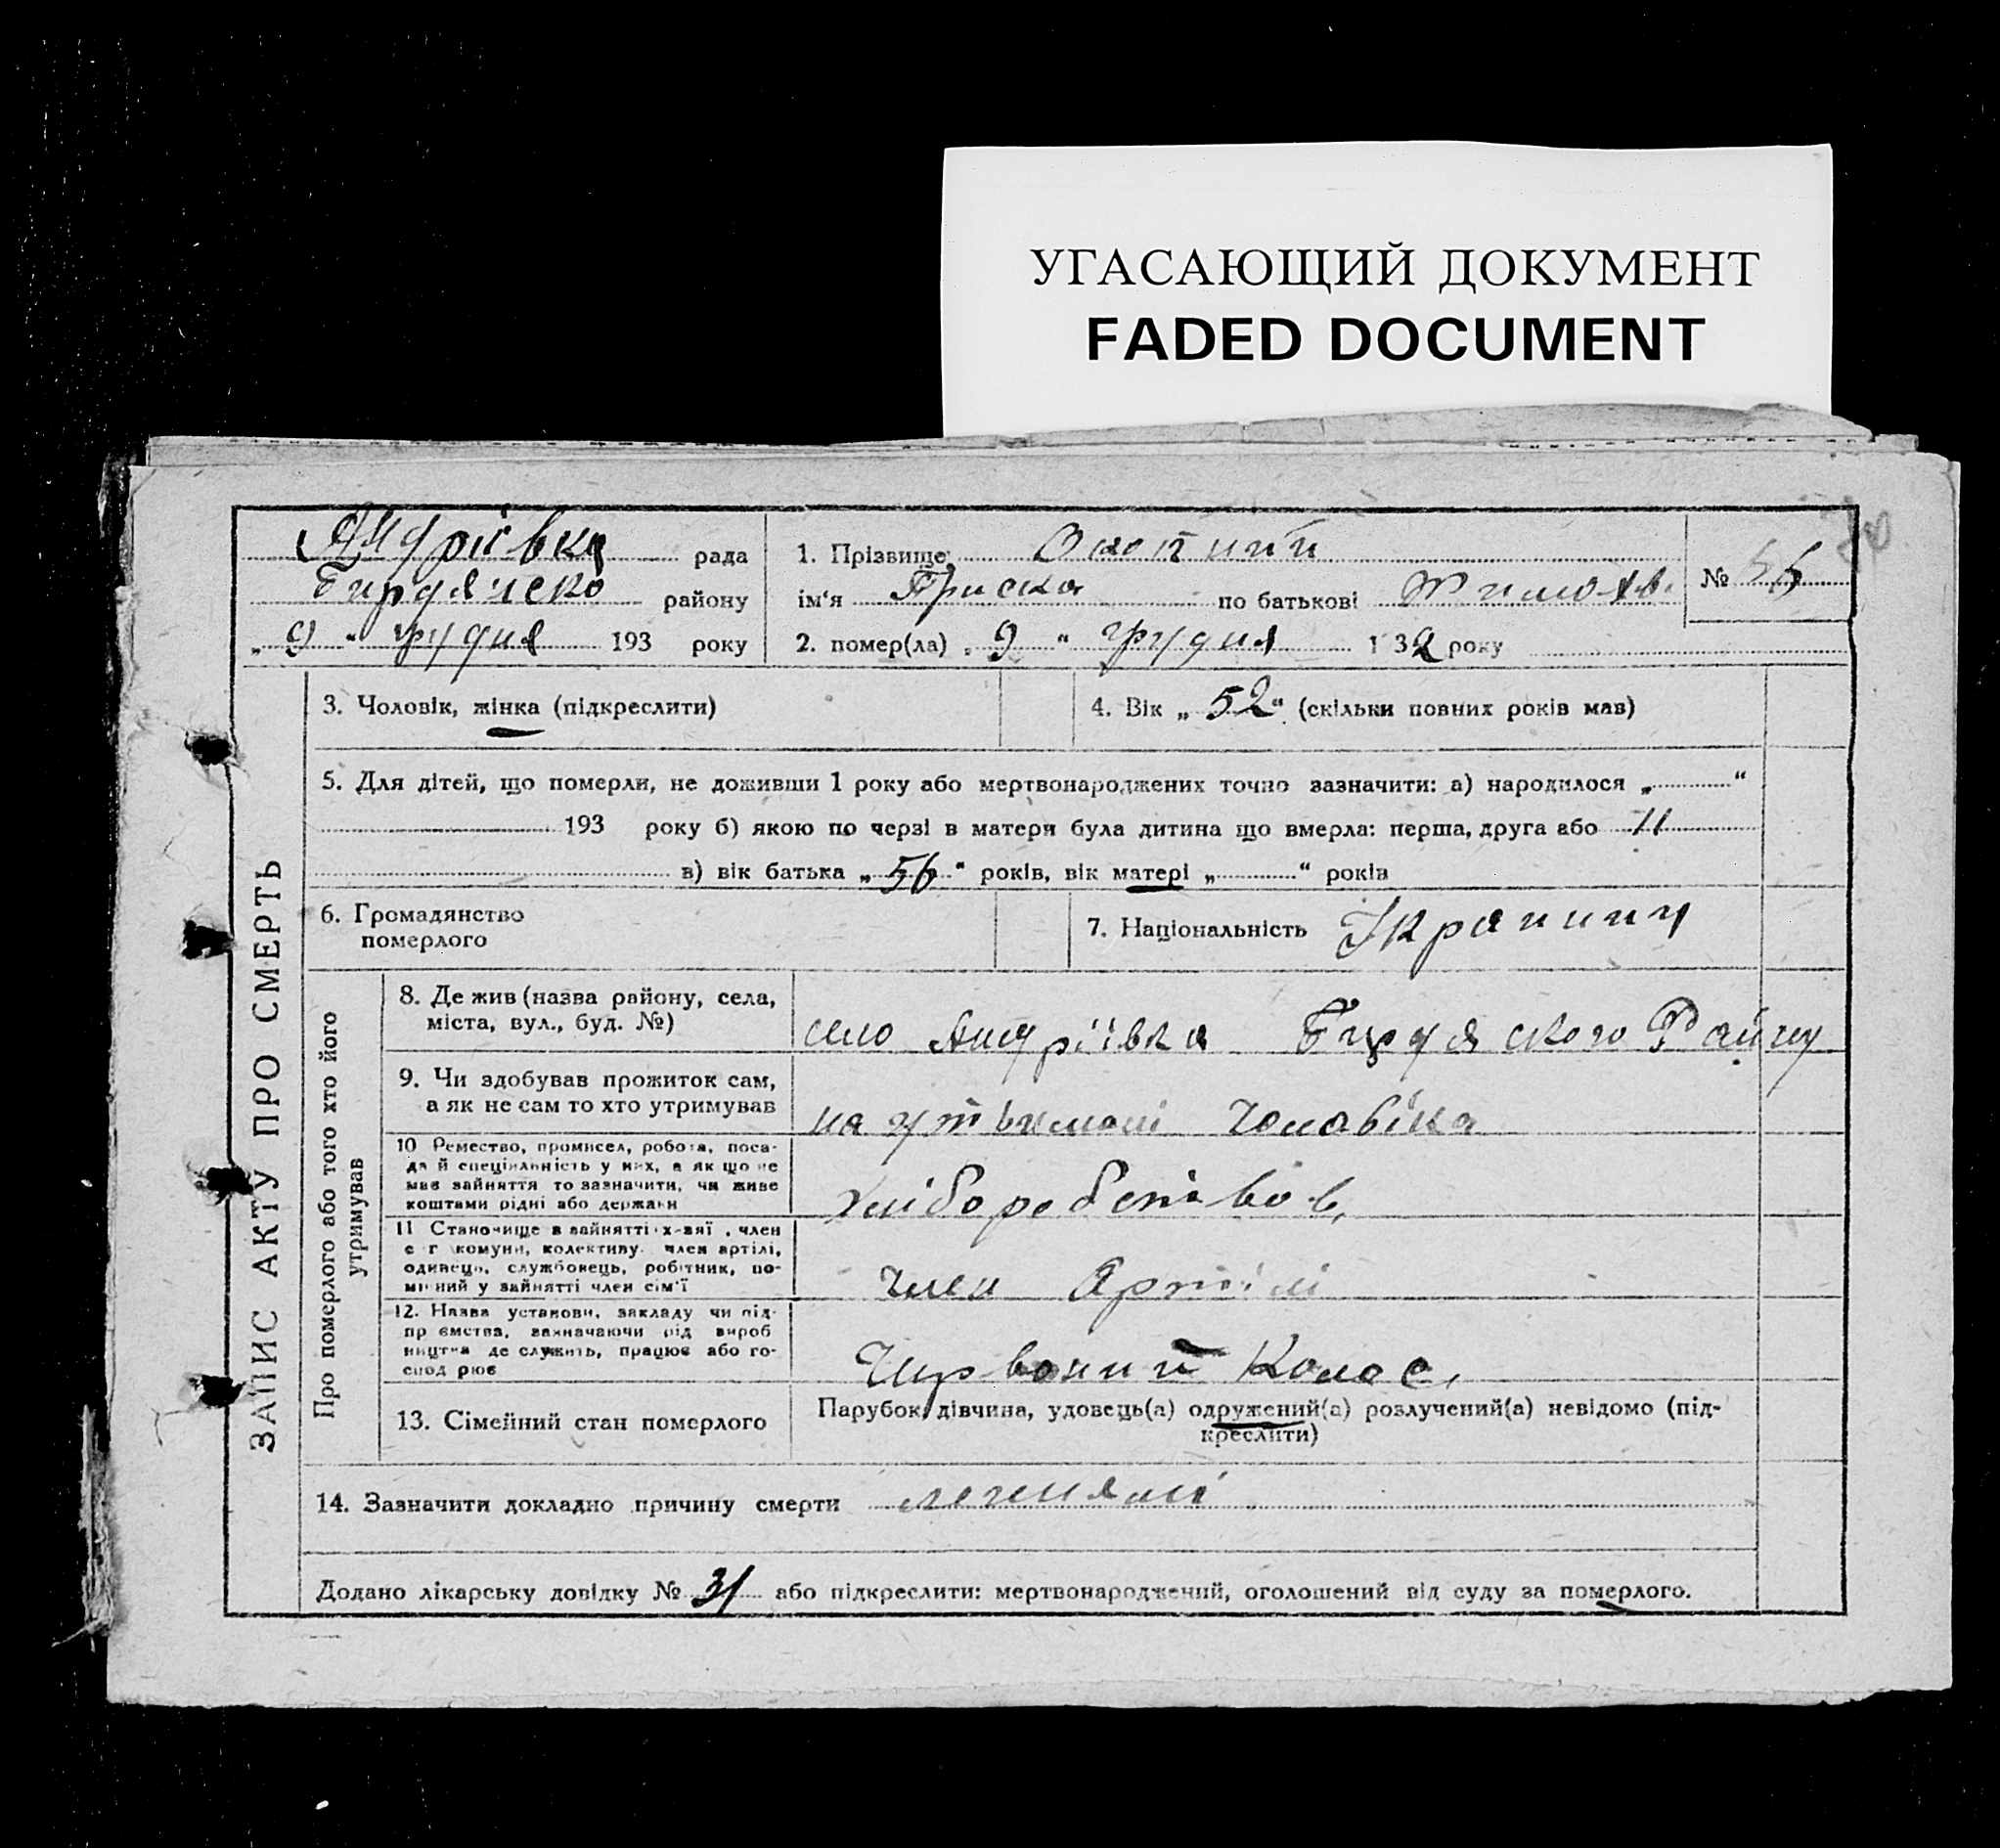 УГАСАЮЩИЙ ДОКУМЕНТ
FADED DOCUMENT
Андріівка рада
району
„ 9 “ грудня 193 року
1. Прізвище:
ім'я Приска по батькові
2. помер(ла) „ 9 “ грудня 1 32 року
№ 55
ЗАПИС АКТУ ПРО СМЕРТЬ
3. Чоловік, жінка (підкреслити)
4. Вік „ 52 “ (скільки повних років мав)
5. Для дітей, що померли, не доживши 1 року або мертвонароджених точно зазначити: а) народилося „ “
193 року б) якою по черзі в матери була дитина що вмерла: перша, друга або 11
в) вік батька „ 56 “ років, вік матері „ “ років
6. Громадянство
померлого
7. Національність
Про померлого або того хто його
утримував
8. Де жив (назва району, села,
міста, вул., буд. №)
село Андріівка
9. Чи здобував прожиток сам,
а як не сам то хто утримував
на чоловіка
10 Ремество, промисел, робота, поса-
да й спеціяльність у них, а як що не
має зайняття то зазначити, чи живе
коштами рідні або держави
11 Становище в зайнятті член
комуни, колективу член артілі,
одинець, службовець, робітник, по-
мічний у зайнятті член сім'ї
Член Артілі
12. Назва установи, закладу чи під-
приємства, зазначаючи рід вироб
ництва де служить, працює або го-
сподарює
Чирвоний Колос,
13. Сімейний стан померлого
Парубок, дівчина, удовець(а) одружений(а) розлучений(а) невідомо (під-
креслити)
14. Зазначити докладно причину смерти
Додано лікарську довідку № 31 або підкреслити: мертвонароджений, оголошений від суду за померлого.